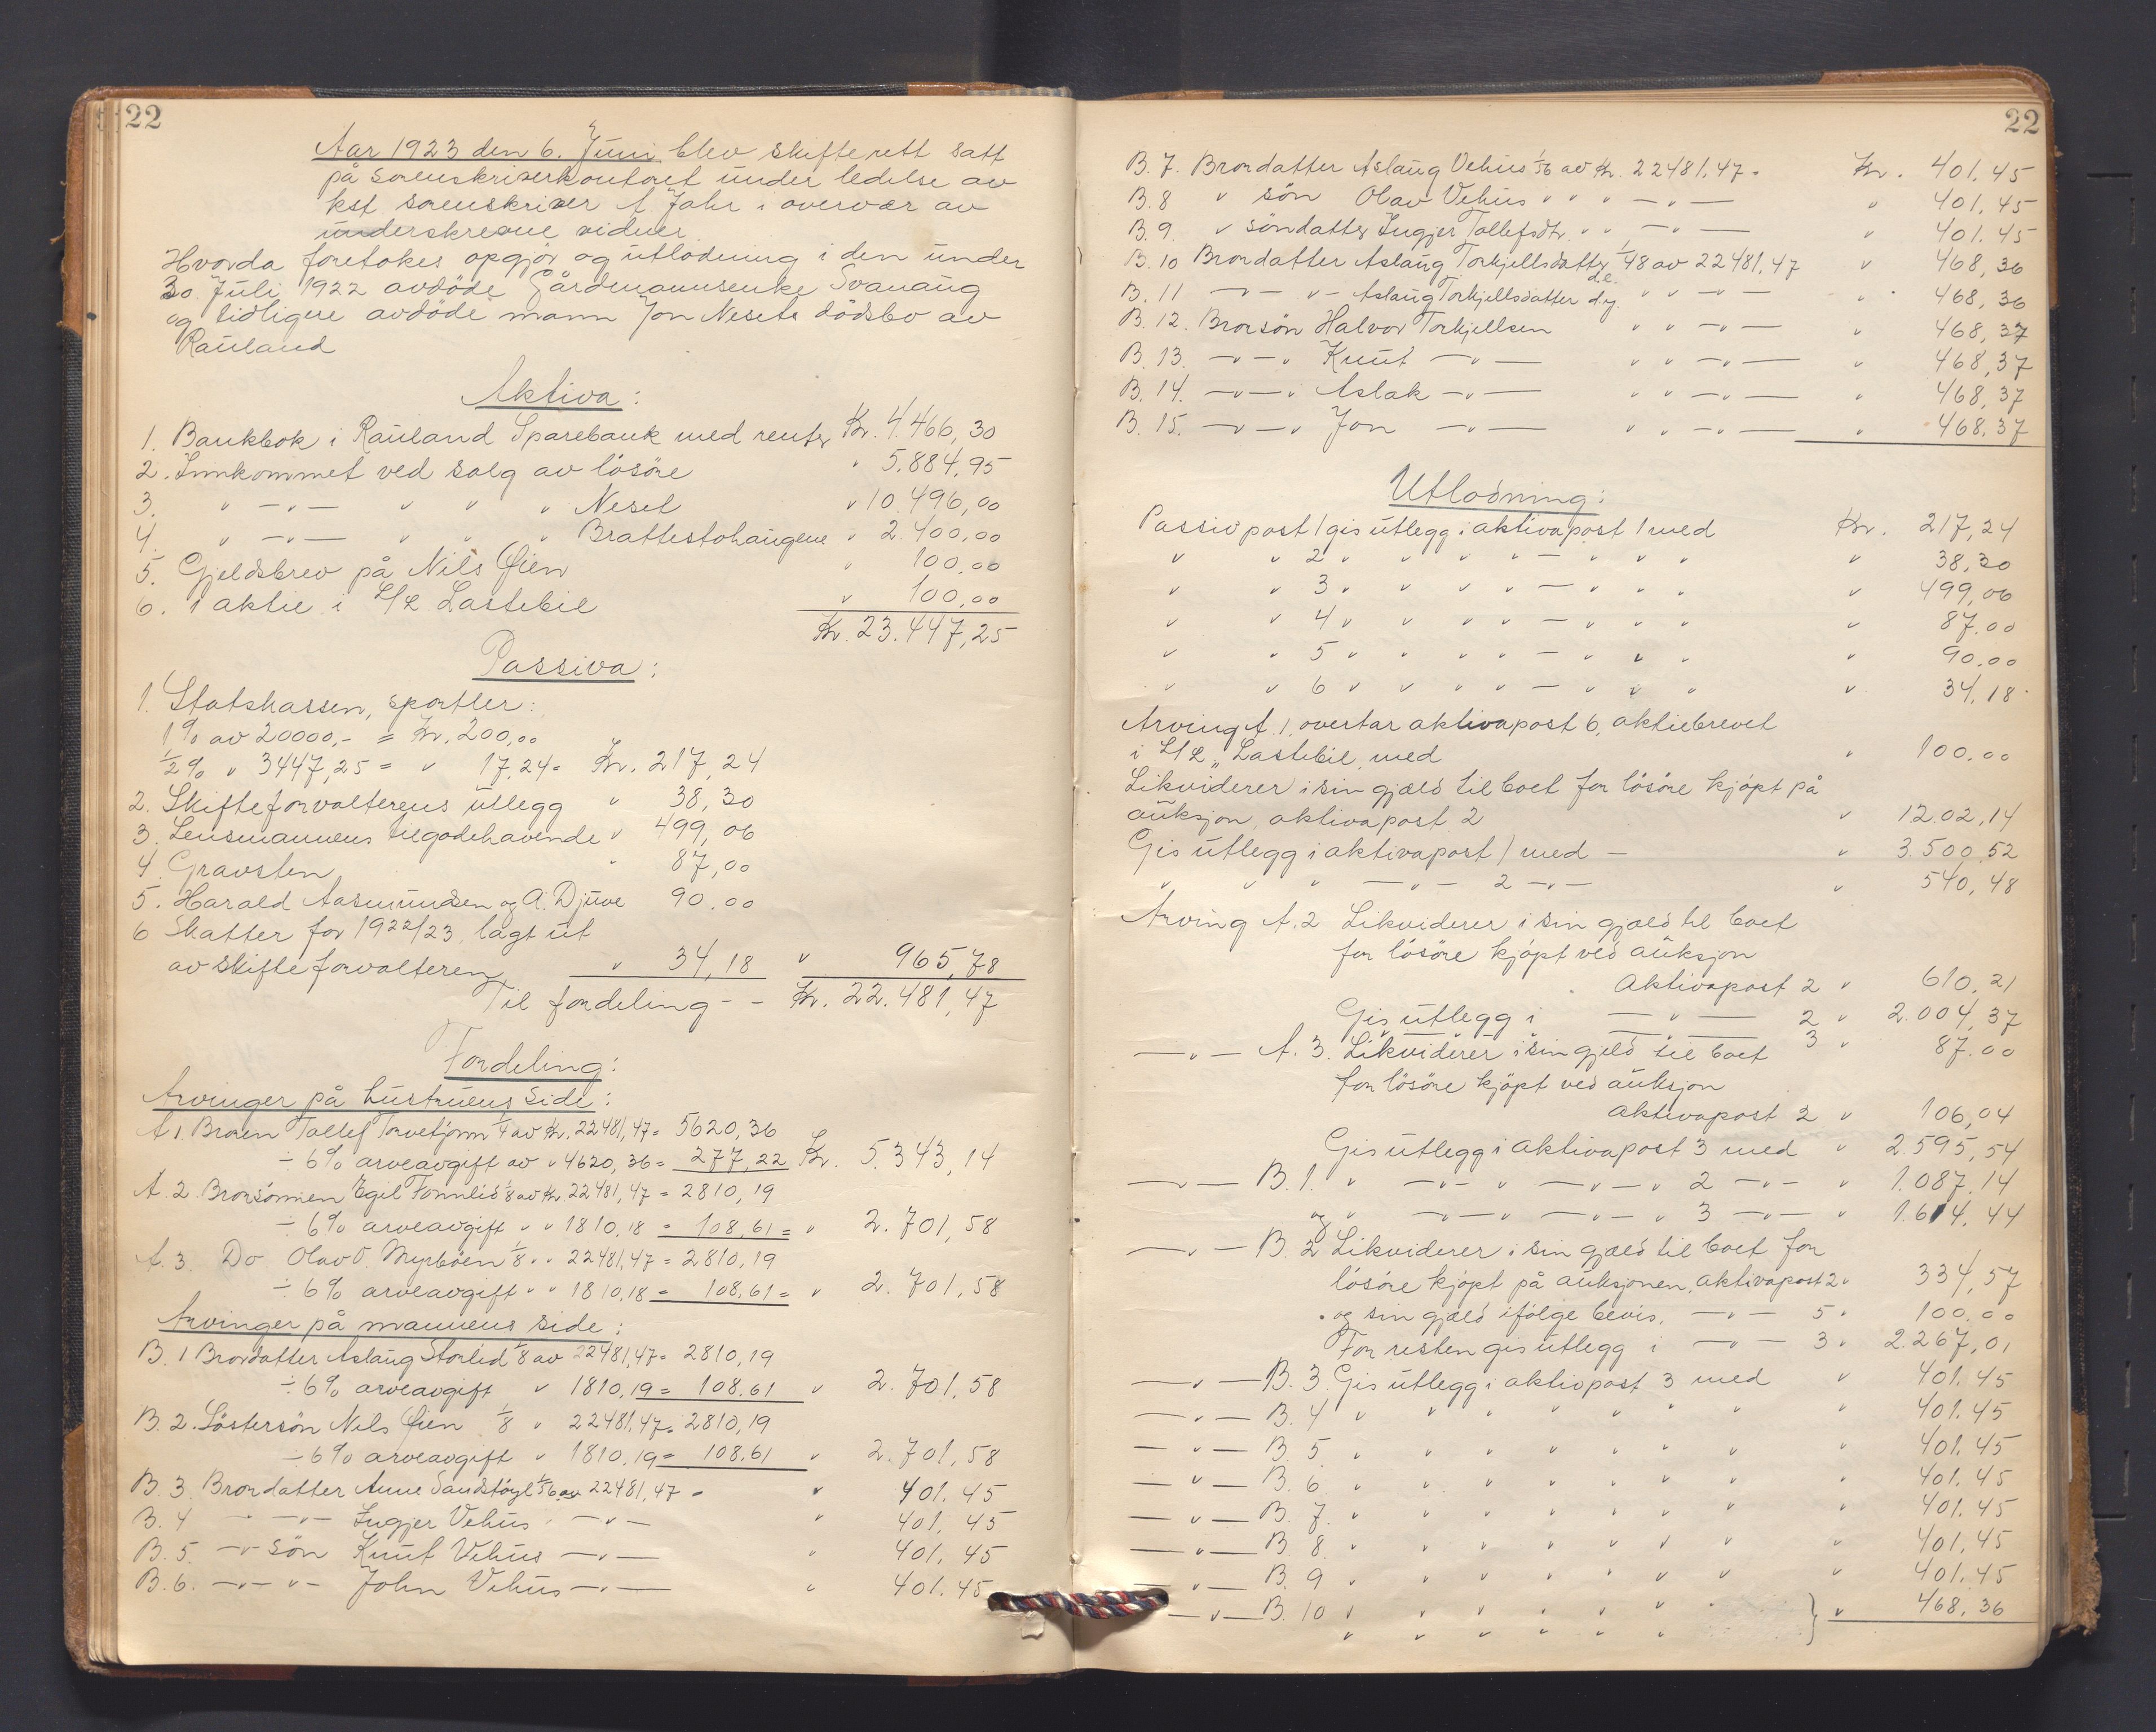 22
Aar 1923 den 6. Juni blev skifterett satt
på Sorenskriverkontoret under ledelse av
kst. sorenskriver A Jahr i overvær av
underskrevne vidner
Hvorda foretokes opgjör og utlodning i den under
30. Juli 1922 avdöde Gårdmannsenke Svanaug
og tidligere avdöde mann Jon Nesets dödsbo av
Rauland
Aktiva:
1. Bankbok i Rauland Sparebank med renter Kr. 4.466,30
2. Innkommet ved salg av lösöre " 5.884,95
3. " —"— " " " Neset " 10.496,00
4. " —"— " " " Brattestohaugene " 2.400,00
5. Gjeldsbrev på Nils Öien " 100,00
6. 1 aktie i L/L Lastebil " 100,00
Kr. 23.447,25
Passiva:
1. Statskassen, sportler:
1% av 20000,- = Kr. 200,00
1/2% " 3447,25 = " 17,24 = Kr. 217,24
2. Skifteforvalterens utlegg " 38,30
3. Lensmannens tilgodehavende " 499,06
4. Gravsten " 87,00
5. Harald Aasmundsen og A. Djuve 90.00
6 Skatter for 1922/23 lagt ut
av skifteforvalteren " 34,18 " 965,78
Til fordeling - - Kr. 22.481,47
Fordeling:
Arvinger på hustruens side:
A 1. Broren Tallef Torvetjönn 1/4 av Kr. 22481,47 = 5620,36
÷ 6% arveavgift av " 4620,36 = 277,22 Kr. 5.343,14
A. 2 Brorsönnen Egil Fonnlid 1/8 av Kr 22481,47 = 2810,19
÷ 6% arveavgift " " 1810,18 = 108,61 = " 2.701,58
A. 3. Do Olav O. Myrböen 1/8 " " 22481,47 = 2810,19
÷ 6% arveavgift " " 1810,18 = 108,61 = " 2.701,58
Arvinger på mannens side:
B. 1 Brordatter Aslaug Storlid 1/8 av 22481,47 = 2810,19
÷ 6% arveavgift " 1810,19 = 108.61 " 2.701,58
B. 2. Söstersön Nils Öien 1/8 " 22481,47 = 2810,19
÷ 6% arveavgift " 1810,19 = 108.61 " 2.701,58
B. 3. Brordatter Anne Sandstöyl 1/56 av 22481,47 = " 401,45
B. 4 —"— Ingjer Vehus —"— " 401,45
B. 5. —"— sön Knut Vehus —"— " 401,45
B. 6. —"—"— John Vehus —"— " 401.45
22
B. 7. Brordatter Aslaug Vehus 1/56 av Kr. 22481,47 = Kr. 401,45
B. 8 " sön Olav Vehus " " " —"— " 401,45
B. 9. " söndatter Ingjer Tallefsdtr. " " —"— " 401.45
B. 10 Brordatter Aslaug Torkjellsdatter d.e. 1/48 av 22481,47 " 468,36
B. 11 —"— "— Aslaug Torkjellsdatter d.y. " " —"— " 468,36
B. 12. Brorsön Halvor Torkjellsen " " —"— " 468,37
B. 13. —"—" Knut —"— " " —"— " 468,37
B. 14. —"—" Aslak —"— " " —"— " 468,37
B. 15. —"—" Jon —"— " " —"— " 468.37
Utlodning:
Passivpost 1 gis utlegg i aktivapost 1 med Kr. 217,24
" " 2 " " " " — " " " " 38,30
" " 3 " " " " — " " " " 499,06
" " 4 " " " " — " " " " 87.00
" " 5 " " " " — " " " " 90.00
" " 6 " " " " — " " " " 34,18
Arving A. 1. overtar aktivapost 6, aktiebrevet
i L/L „Lastebil" med " 100.00
Likviderer i sin gjæld til boet for lösöre kjöpt på
auksjon, aktivapost 2 " 12.02,14
Gis utlegg i aktivapost 1 med — " 3.500,52
" " " —"— 2 —"— " 540,48
Arving A. 2 Likviderer i sin gjæld til boet
for lösöre kjöpt ved auksjon
Aktivapost 2 " 610,21
Gis utlegg i —"— 2 " 2.004,37
" —"— 3 " 87.00
—"— A. 3. Likviderer i sin gjeld til boet
for lösöre kjöpt ved auksjon
aktivapost 2 " 106,04
Gis utlegg i aktivapost 3 med " 2.595,54
—"— B. 1. " —"— " —"—" 2 —"— " 1.087,14
og " —"— —"—" 3 —"— " 1.614,44
—"— B. 2 Likviderer i sin gjæld til boet for
lösöre kjöpt på auksjonen, aktivapost 2 " 334,57
" og sin gjæld ifölge bevis, —"— 5 " 100.00
For resten gis utlegg i —"— 3 " 2.267,01
—"— B. 3. Gis utlegg i aktivpost 3 med " 401.45
—"— B. 4 " " " " " " " 401.45
—"— B. 5. " " " " " " " 401.45
—"— B. 6. " " " " " " " 401.45
—"— B. 7. " " " " " " " 401.45
—"— B. 8. " " " " " " " 401,45
—"— B. 9 " " " " " " " 401.45
—"— B. 10 " " " " " " } " 468,36
" " " " " "